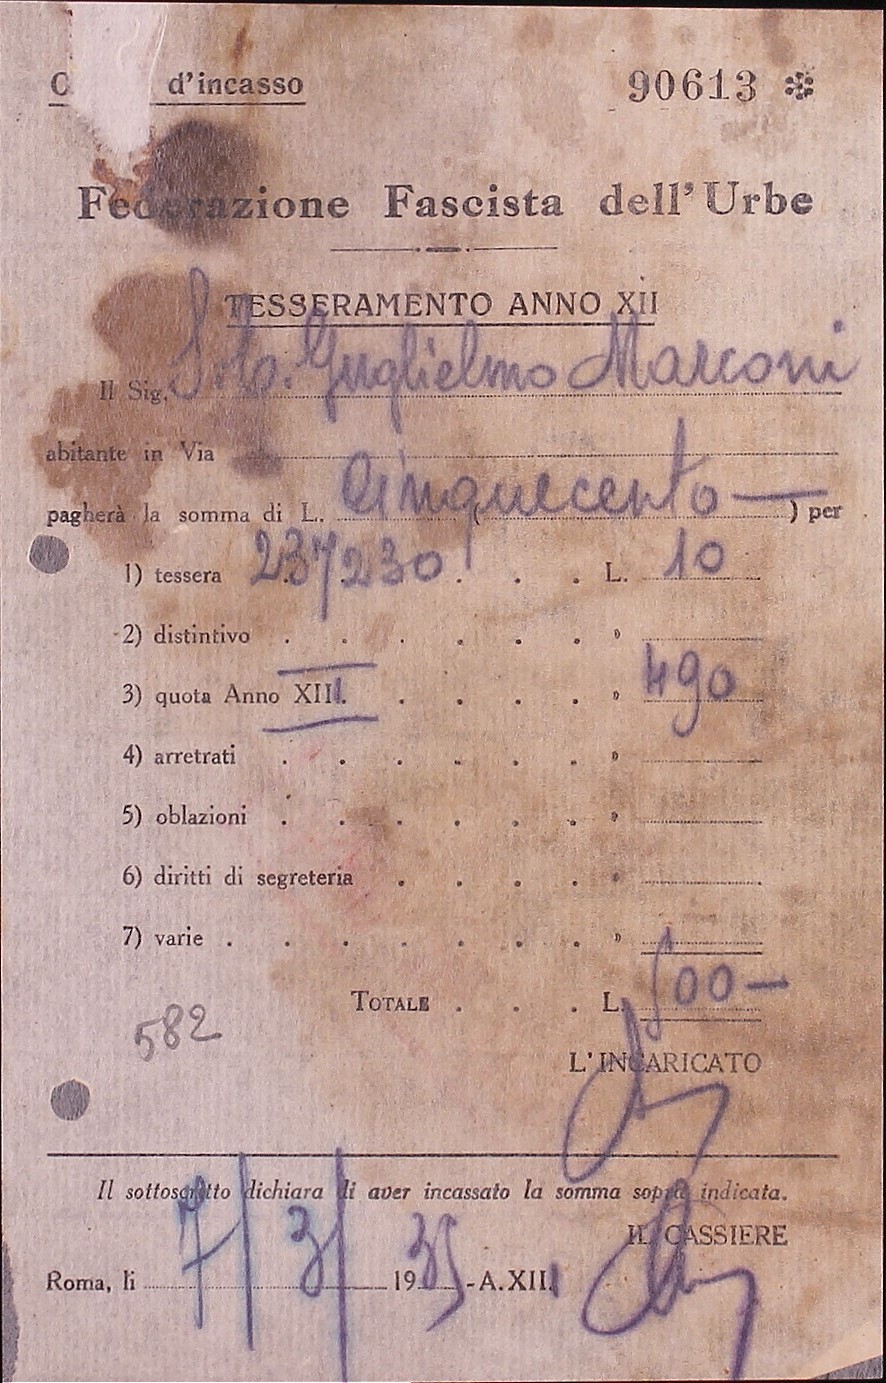 d'incasso 90613 ✻
Federazione Fascista dell'Urbe
TESSERAMENTO ANNO XII
Il Sig. Guglielmo Marconi
abitante in Via
pagherà la somma di L. Cinquecento — ( ) per
1) tessera 237230 . . . L. 10
2) distintivo . . . . . . »
3) quota Anno XIII. . . . . » 490
4) arretrati . . . . . . »
5) oblazioni . . . . . . »
6) diritti di segreteria . . . . »
7) varie . . . . . . . »
TOTALE . . . L. 500—
582
L'INCARICATO
Il sottoscritto dichiara di aver incassato la somma sopra indicata.
IL CASSIERE
Roma, li 7/3/ 1935 - A. XIII